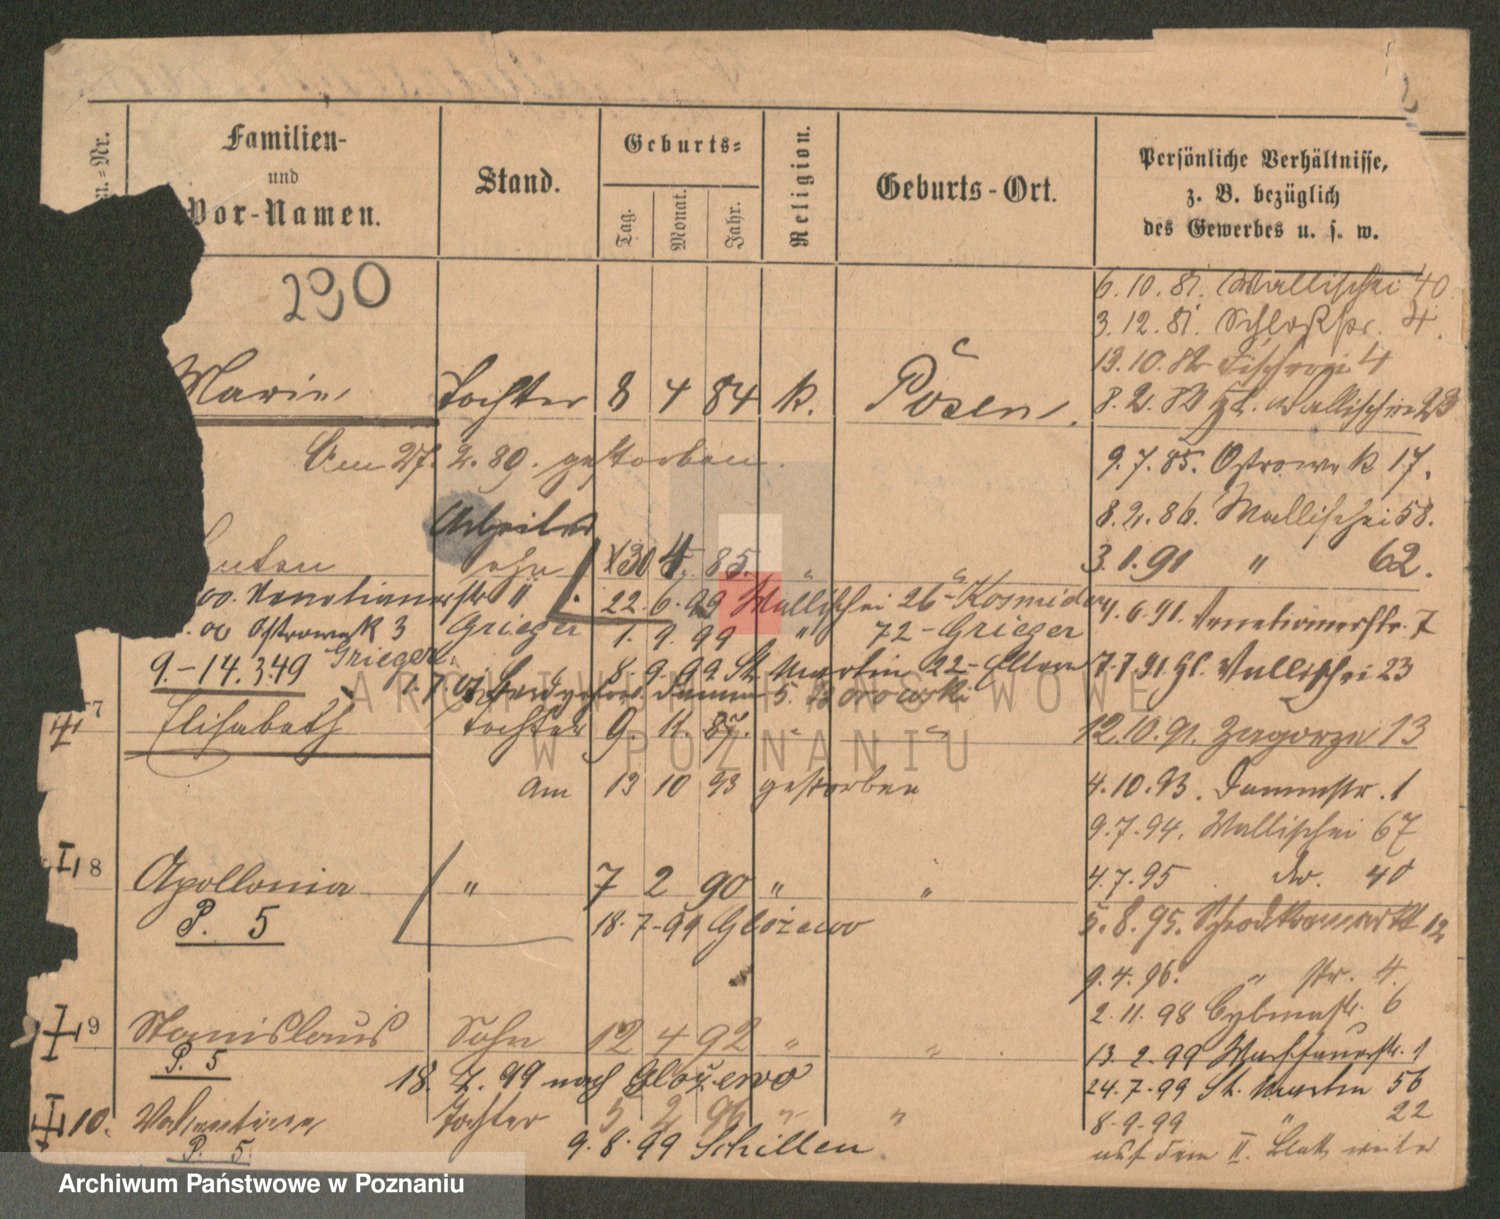 Familien-
und
Vor-Namen.
Stand.
Geburts-
Tag.
Monat.
Jahr.
Religion.
Geburts-Ort.
Persönliche Verhältnisse,
z. B. bezüglich
des Gewerbes u. s. w.
290
6. 10. 81. Wallischei 40
3. 12. 81. 4.
13. 10. 82 Fischerei 4
Marie Tochter 8 4 84 k. Posen
8. 2. 84 Wallischei 23
Am 27. 2. 89. gestorben.
9. 7. 85. Ostrowek 17.
8. 2. 86. Wallischei 58.
Arbeiter
Sohn 30 4. 85. " "
3. 1. 91 " 62.
00. Venetianerstr 11 22. 6. 99 Wallischei 26 - Kosmider
4. 6. 91. Venetianerstr. 7
00 Ostrowek 3 Grieger 1. 9. 99 " 72 - Grieger
9. - 14. 3. 49 Grieger. 8. 9. 99 St. Martin 22 -
7. 7. 91. Gl. Wallischei 23
1. 7. 5. Borowski
7 Elisabeth Tochter 9. 11. 87. " "
12. 10. 91. Zagorze 13
am 13 10 93 gestorben
4. 10. 93. Dammstr. 1
9. 7. 94. Wallischei 67
8 Apollonia " 7 2 90 " "
4. 7. 95 do. 40
P. 5
18. 7. 99 Glożewo
5. 8. 95. 12
9. 4. 96. " str. 4.
2. 11. 98 Cybinastr. 6
9 Stanislaus Sohn 12 4 92 " "
13. 2. 99 Warschauerstr. 1
P. 5
18. 7. 99 nach Glożewo
24. 7. 99 St. Martin 56
10. Valentine Tochter 5 2 96 " "
8. 9. 99 " 22
P. 5
9. 8. 99 Schillen
auf dem II. Blatt weiter
ARCHIWUM PAŃSTWOWE
W POZNANIU
Archiwum Państwowe w Poznaniu